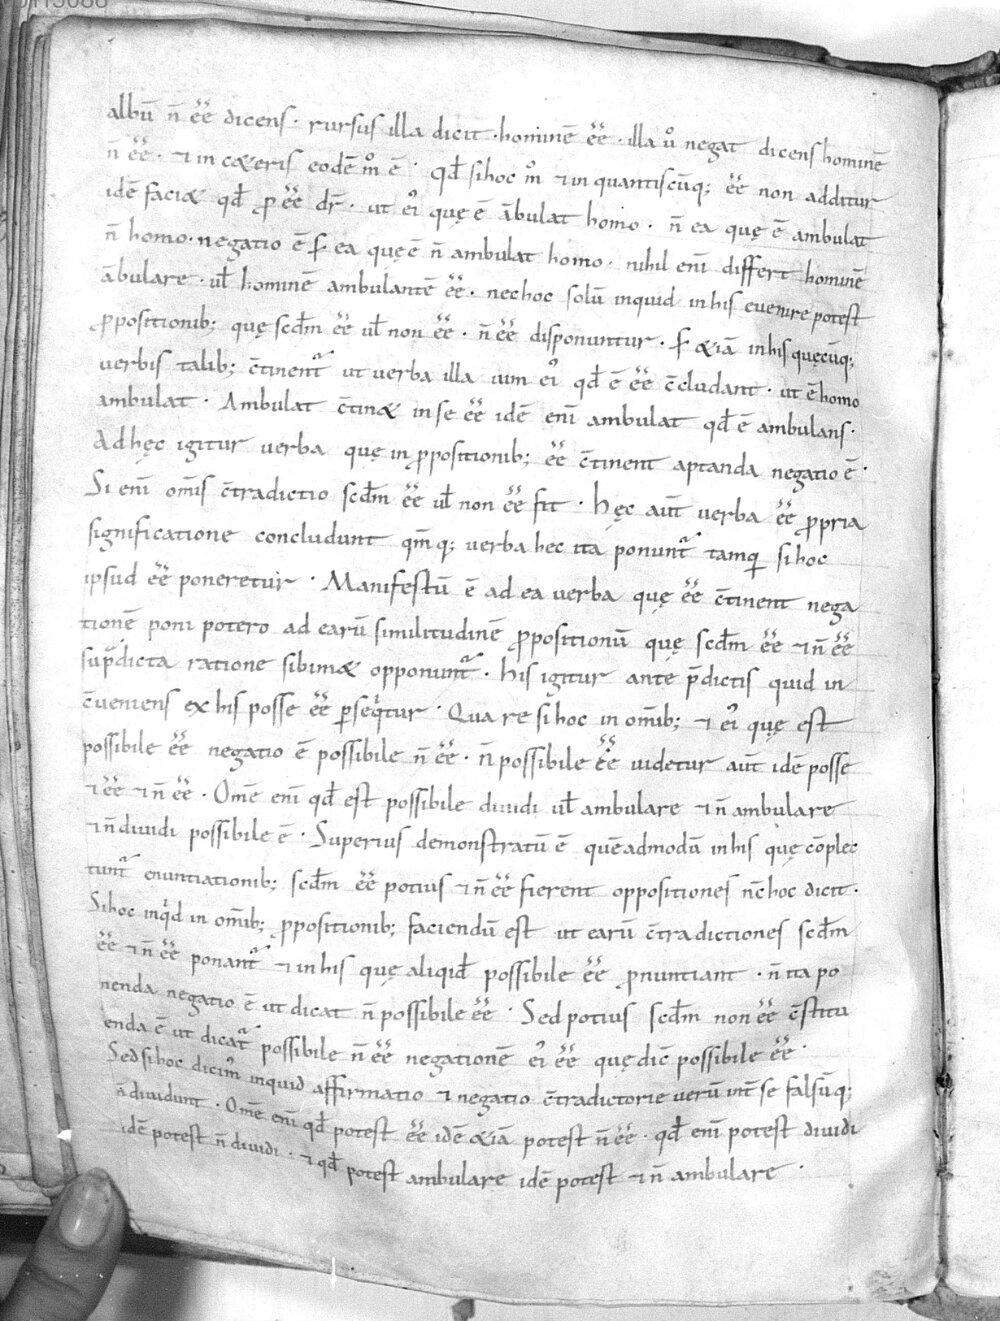 albū n̄ e͞e dicens · rursus illa dicit · hominē e͞e · illa ů negat dicens hominē
n̄ e͞e · ⁊ in cęteris eodē m̊ ē · qđ si hoc m̊ ⁊ in quantiscūq; e͞e non additur
idē faciæ qđ ꝓ e͞e dr̄ · ut ei' quę ē ābulat homo · n̄ ea quę ē ambulat
n̄ homo · negatio ē ſ ea quę ē n̄ ambulat homo · nihil eni̅ differt hominē
ābulare · uł hominē ambulantē e͞e · nec hoc solū inquid in his euenire potest
ꝓpositionib; quę scđm e͞e uł non e͞e · n̄ e͞e disponuntur · ſ &iā in his quęcūq;
uerbis talib; c̄tinent᷑ ut uerba illa uim ei' qđ ē e͞e c̄cludant · ut ē homo
ambulat · Ambulat c̄tinæ in se e͞e idē eni̅ ambulat qđ ē ambulans ·
Ad hęc igitur uerba quę in ꝓpositionib; e͞e c̄tinent aptanda negatio ē ·
Si eni̅ om̄is c̄tradictio scđm e͞e uł non e͞e fit · Hęc aut̄ uerba e͞e ꝓpria
significatione concludunt qm̄q; uerba hec ita ponunt᷑ tamq̄ si hoc
ipsud e͞e poneretur · Manifestū ē ad ea uerba quę e͞e c̄tinent nega
tionē poni potero ad earū similitudinē ꝓpositionū quę scđm e͞e ⁊ n̄ e͞e
supᵃdicta ratione sibimæ opponunt᷑ · His igitur ante p̄dictis quid in
c̄ueniens ex his posse e͞e ꝑseqͥtur · Qua re si hoc in om̄ib; ⁊ ei' quę est
possibile e͞e negatio ē possibile n̄ e͞e · n̄ possibile e͞e uidetur aut̄ idē posse
⁊ e͞e ⁊ n̄ e͞e · Om̄e eni̅ qđ est possibile diuidi uł ambulare ⁊ n̄ ambulare
⁊ n̄ diuidi possibile ē · Superius demonstratū ē quēadmodū in his quę cōplec
tunt᷑ enuntiationib; scđm e͞e potius ⁊ n̄ e͞e fierent oppositiones nc̄ hoc dicit ·
Si hoc inqͥd in om̄ib; ꝓpositionib; faciendū est ut earū c̄tradictiones scđm
e͞e ⁊ n̄ e͞e ponant᷑ ⁊ in his quę aliqid possibile e͞e ꝓnuntiant · n̄ ita po
nenda negatio ē ut dicat n̄ possibile e͞e · Sed potius scđm non e͞e c̄stitu
enda ē ut dicat᷑ possibile n̄ e͞e negationē ei' e͞e quę dic̄ possibile e͞e ·
Sed si hoc dicim' inquid affirmatio ⁊ negatio c̄tradictorie uerū int̄ se falsūq;
ādiuidunt · Om̄e eni̅ qđ potest e͞e idē &iā potest n̄ e͞e · qđ eni̅ potest diuidi
idē potest n̄ diuidi · ⁊ qđ potest ambulare idē potest ⁊ n̄ ambulare ·